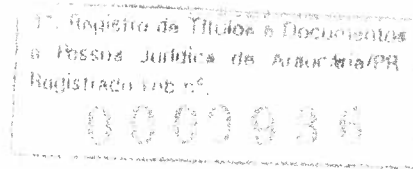 1º. Registro de Títulos e Documentos
e Pessoa Jurídica de Araucária/PR
Registrado sob nº.